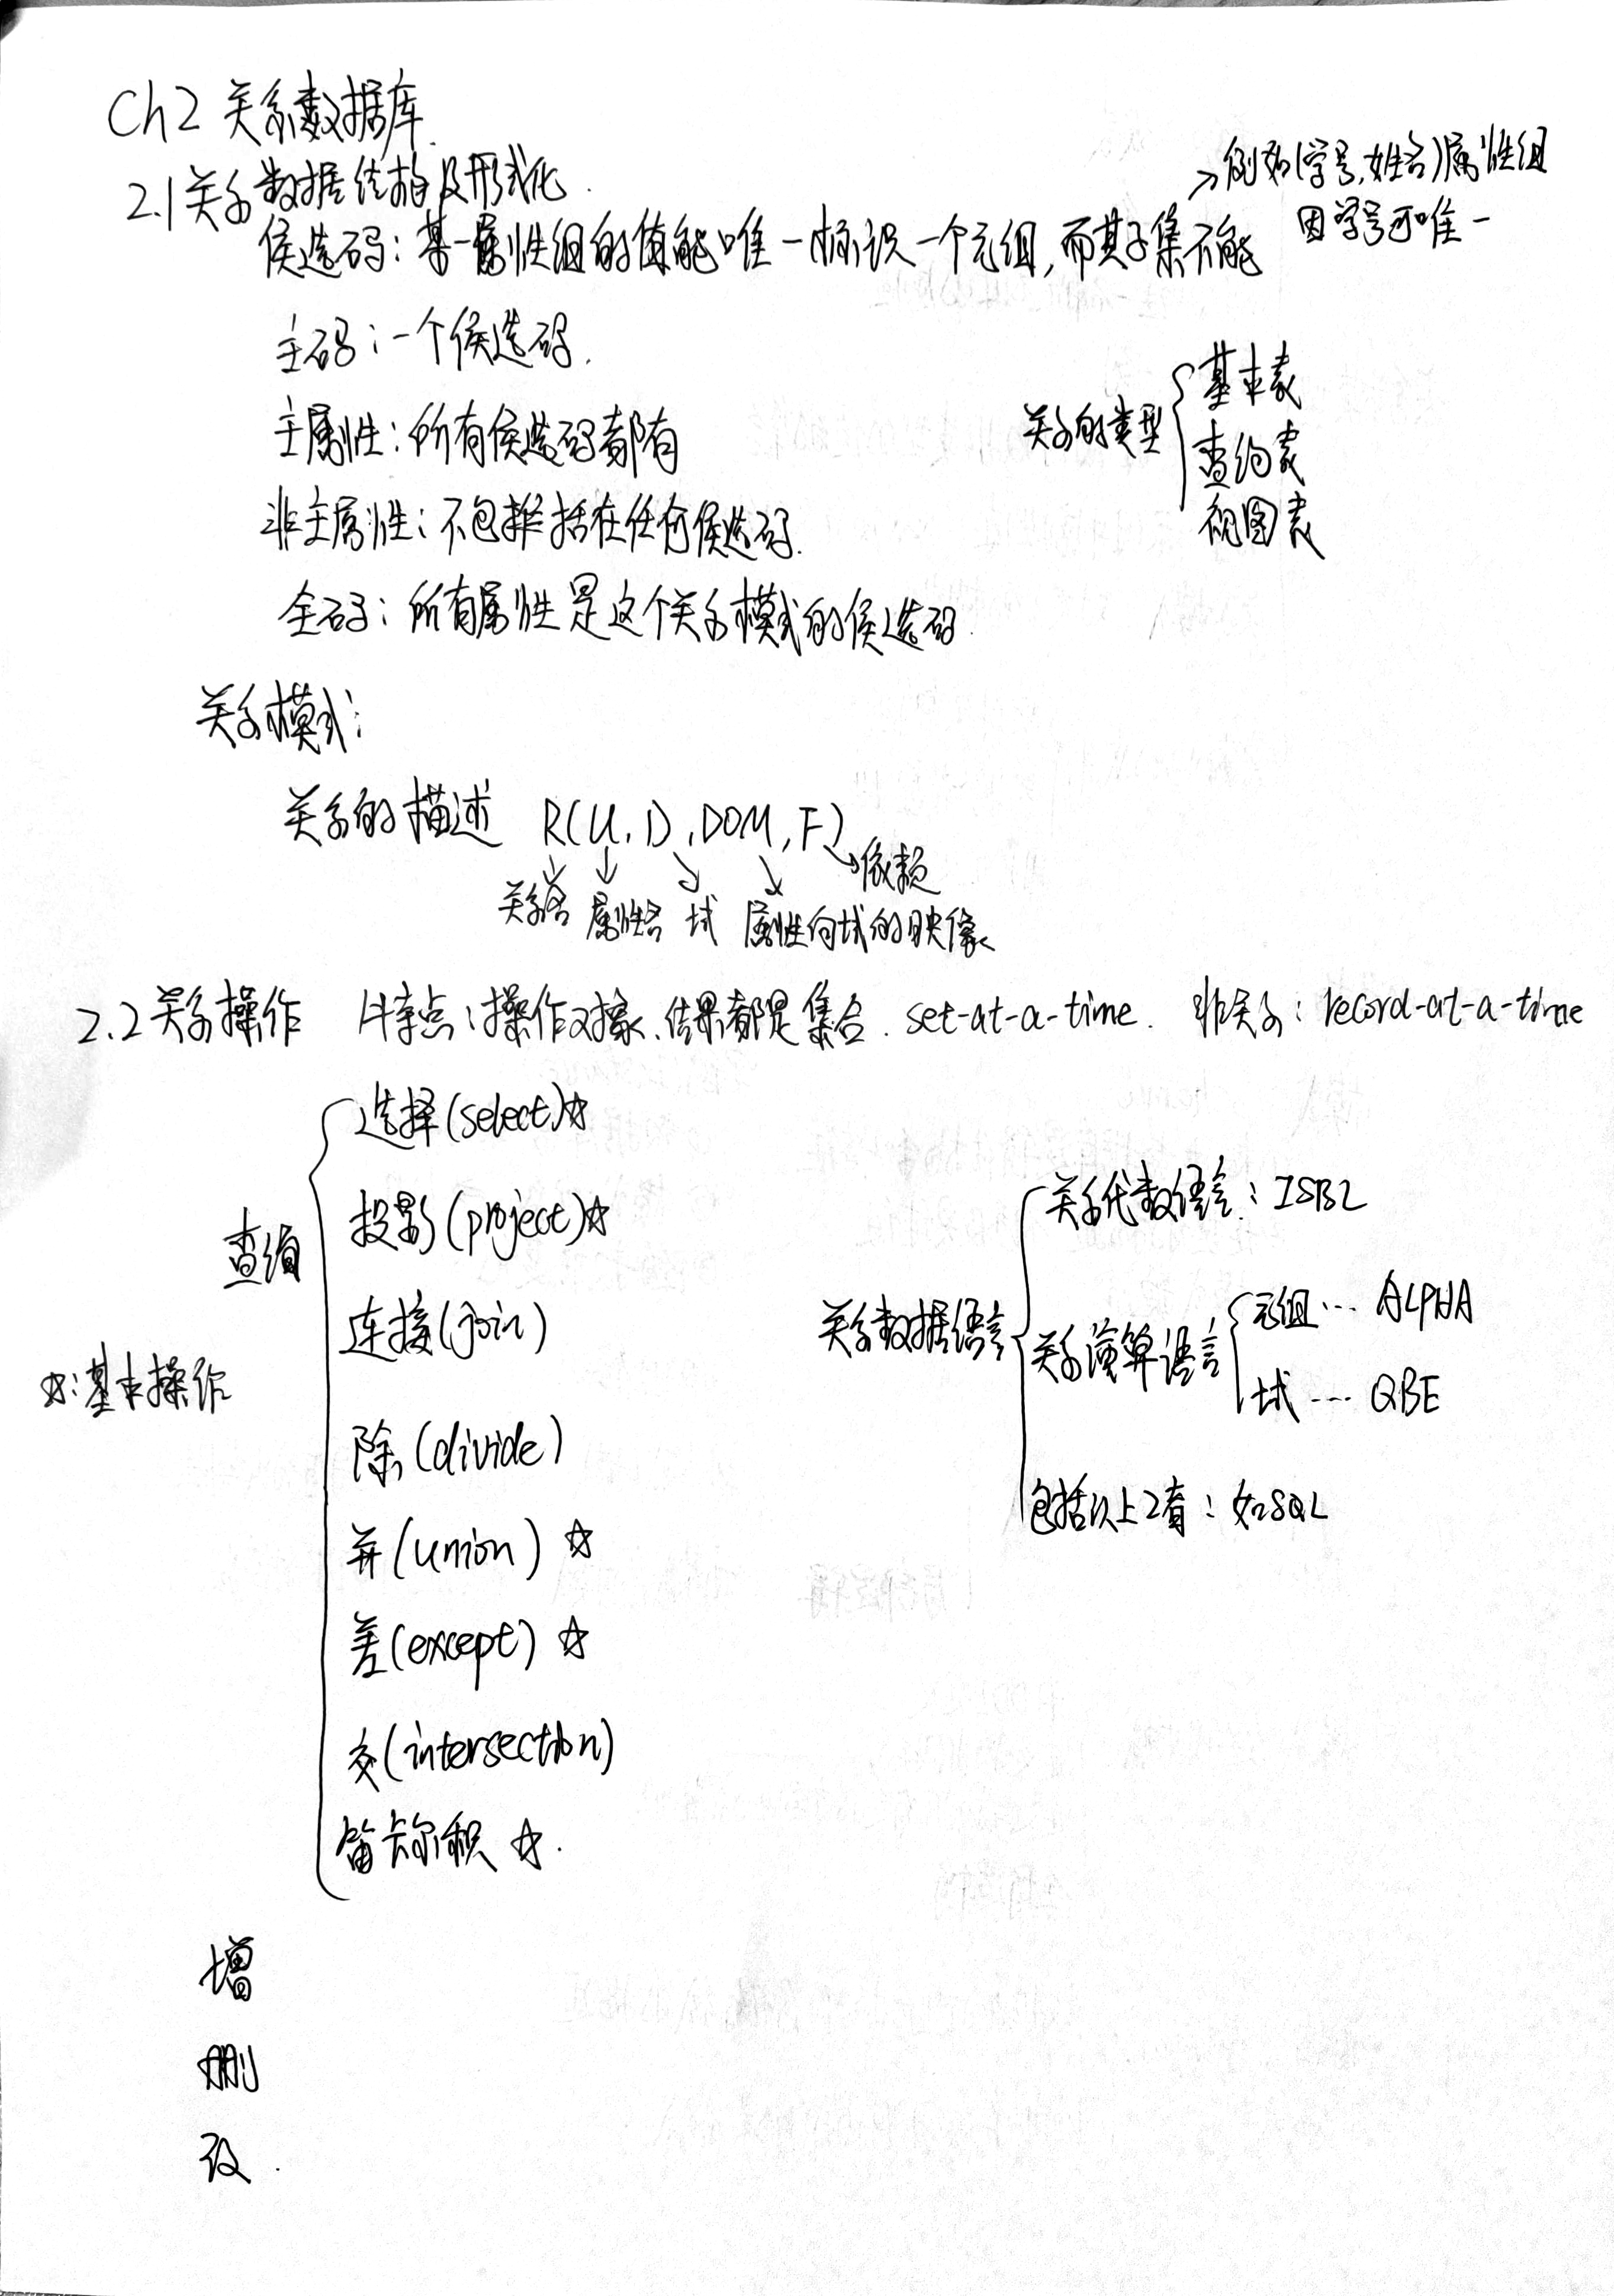 Ch2 关系数据库
2.1 关系数据结构及形式化
→例如(学号,姓名)属性组
因学号可唯一
候选码：某一属性组的值能唯一标识一个元组,而其子集不能
主码：一个候选码.
主属性：所有候选码都有
非主属性：不包括在任何候选码.
全码：所有属性是这个关系模式的候选码.
关系的类型
基本表
查询表
视图表
关系模式：
关系的描述 R(U,D,DOM,F)
关系名 属性名 域 属性向域的映像 依赖
2.2 关系操作 特点：操作对象、结果都是集合. set-at-a-time. 非关系：record-at-a-time
☆:基本操作
查询
选择(select)☆
投影(project)☆
连接(join)
除(divide)
并(union) ☆
差(except) ☆
交(intersection)
笛卡尔积 ☆.
增
删
改.
关系数据语言
关系代数语言：ISBL
关系演算语言
元组… ALPHA
域… QBE
包括以上2者：如SQL